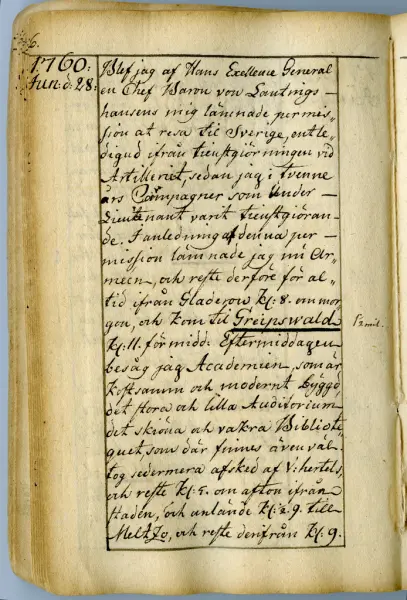 1760:
Jun: d: 28:
Blef jag af Hans Exellence General
en Chef Baron von Lantings-
hausens mig lämnade permis-
sion at resa til Sverige, entle-
digad ifrån tienstgiörningen vid
Artilleriet, sedan jag i tvenne
års Campagner som Under-
Lieutenant varit tienstgiöran-
de. I anledning af denna per-
mission lämnade jag nu Ar-
meen, och reste derföre för al-
tid ifrån Gladerow Kl: 8. om mor-
gon, och kom til Greipswald
Kl: 11. för midd: Eftermiddagen
besåg jag Academien, som är
kostsamm och modernt bygg̈d,
det stora och lilla Auditorium
det skiöna och vakra Bibliote-
quet, som där finnes även väl-
tog sedermera afsked af V: hertels,
och reste Kl: 5. om afton ifrån
staden, och anlände Kl: 2 9. till
Meltzo, och reste derifrån Kl: 9.
1 2 mil.